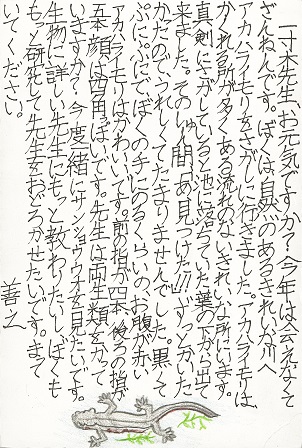 一寸木先生、お元気ですか？今年は会えなくて
ざんねんです。ぼくは自然のあるきれいな川へ
アカハライモリをさがしに行きました。アカハライモリは
かくれる所が多くある流れのないきれいな所にいます。
真剣にさがしていると池に落ちていた葉の下から出て
来ました。そのしゅん間「あ！見つけた!!!」ずっとかいた
かたのでうれしくてたまりませんでした。黒くて
ぷにぷにでぼくの手にのるくらいのお腹が赤い
アカハライモリはかわいいです。前の指が四本、後ろの指が
五本、顔は四角っぽいです。先生は両生類をかって
いますか？今度一緒にサンショウウオを見たいです。
生物に詳しい先生にもっと教わりたいし、ぼくも
もっと研究して先生をおどろかせたいです。まて
いてください。
善之